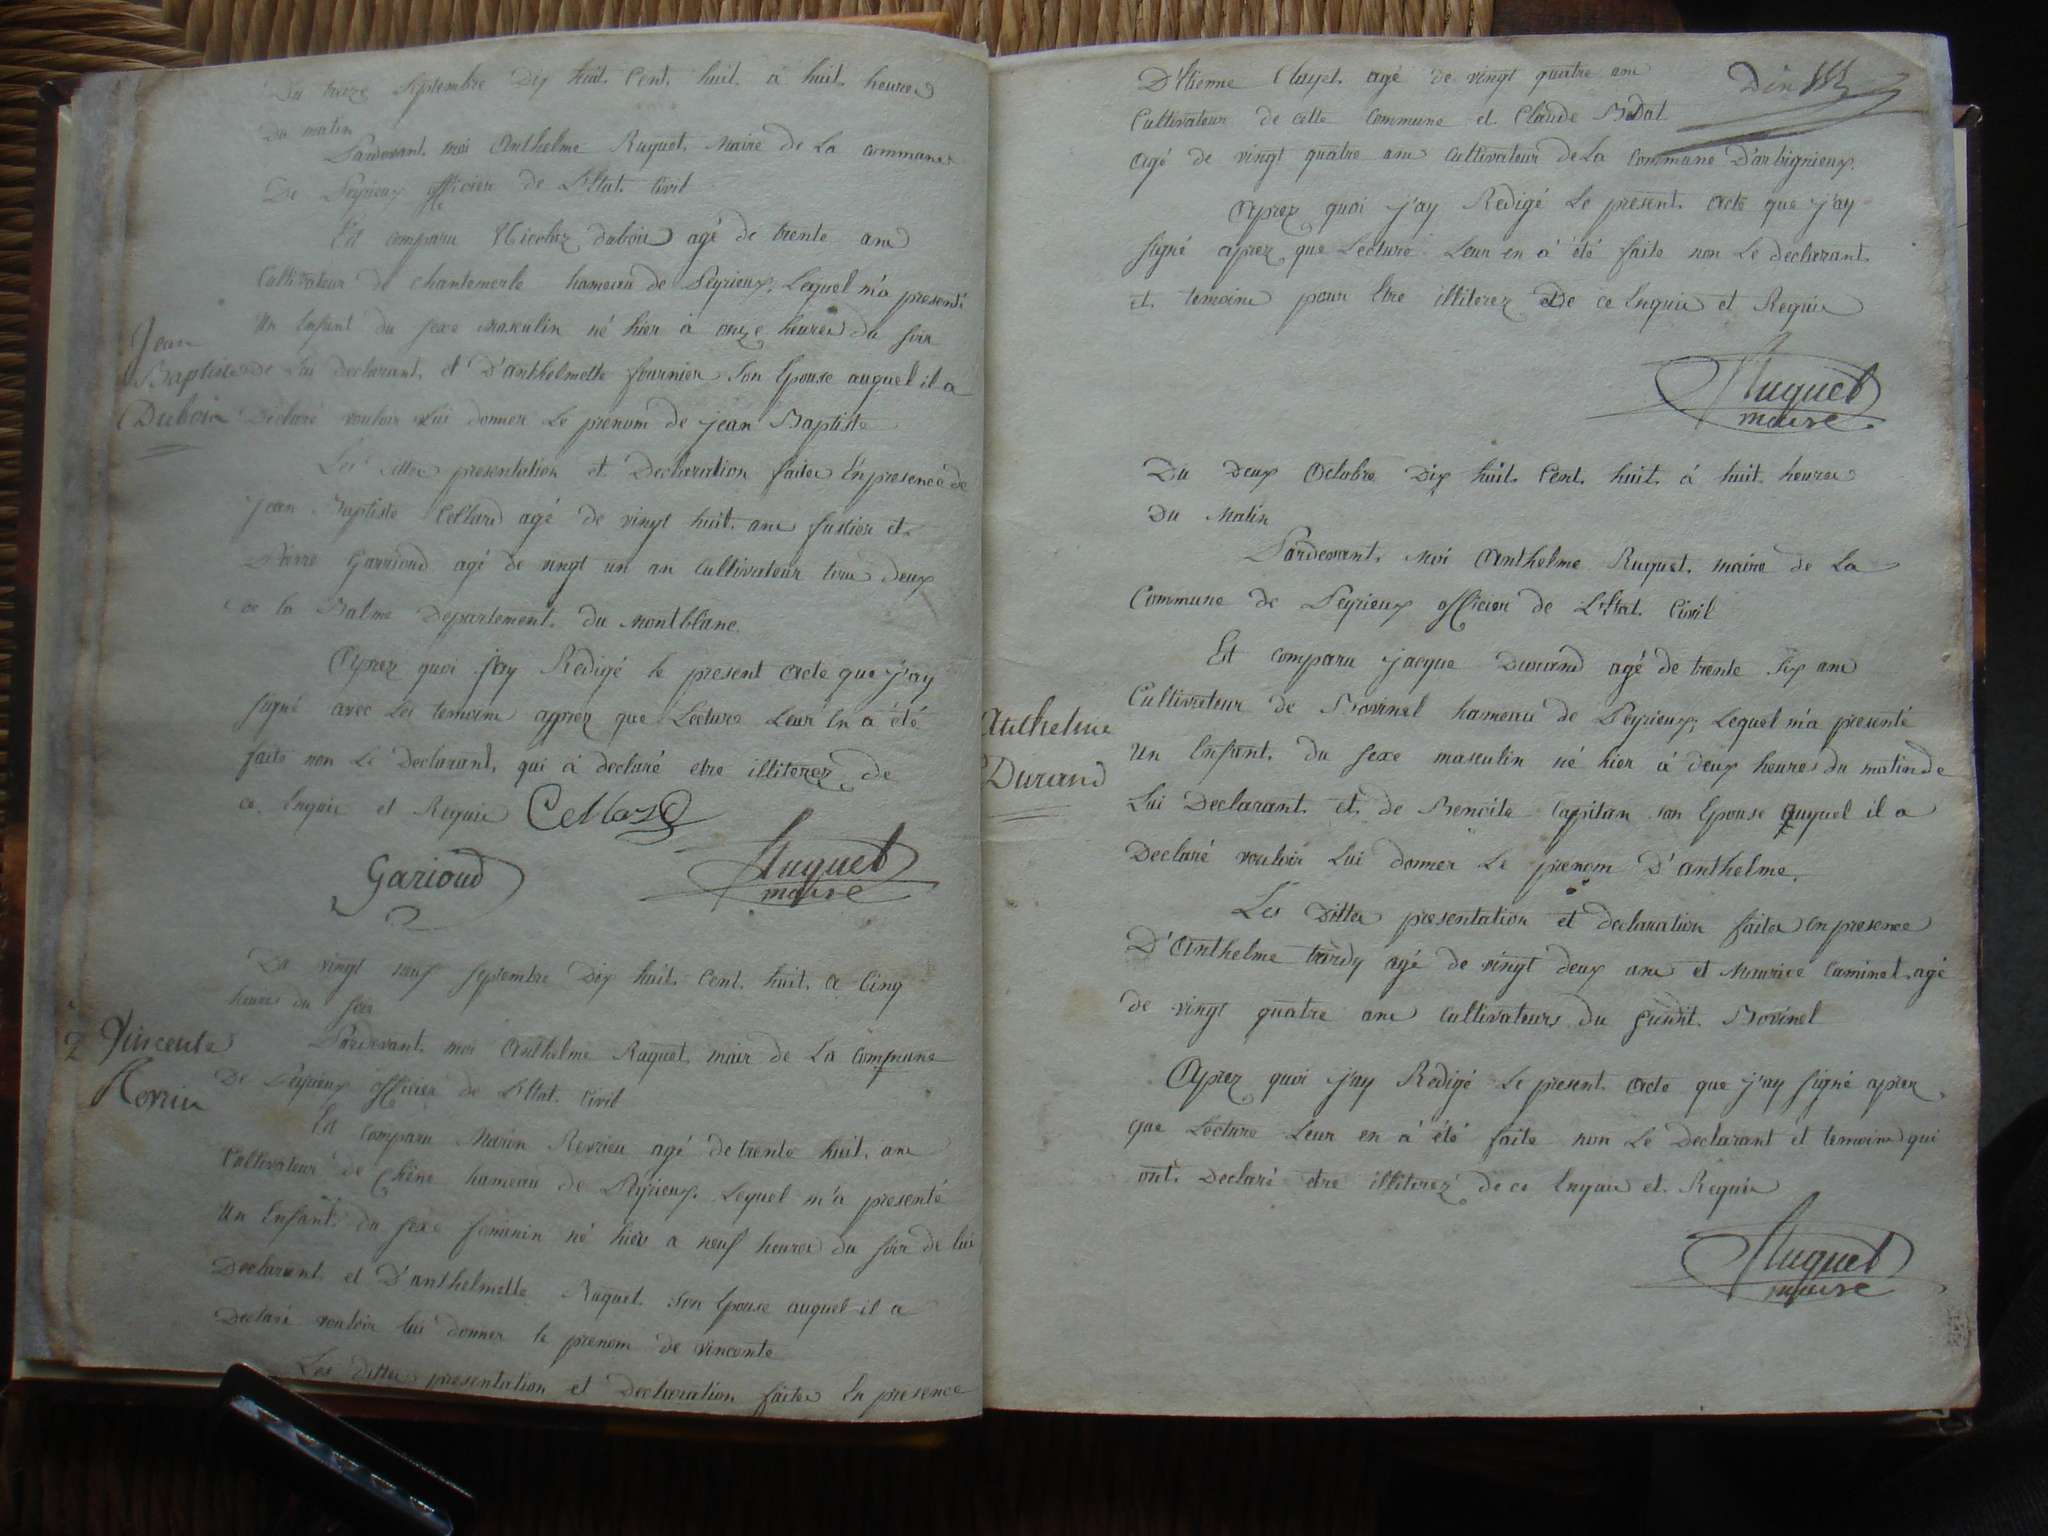 Du treize Septembre Dix huit Cent huit à huit heures
Du matin
Pardevant moi Anthelme Ruquet Maire de La commune
De Peyrieux officier de L'Etat Civil
Est comparu Nicolas dubois agé de trente ans
Cultivateur de chantemerle hameau de Peyrieux, Lequel m'a presenté
Un Enfant du sexe Masculin né hier à onze heures du soir
de Lui Declarant, et D'anthelmette fournier Son Epouse auquel il a
Declaré vouloir Lui donner Le prenom de jean Baptiste
Jean
Baptiste
Dubois
Les dittes presentation et Declaration faites En presence de
jean Baptiste Collard agé de vingt huit ans fustier et
Pierre Garrioud agé de vingt un an Cultivateur tous deux
de la Balme Departement du Montblanc
Aprez quoi j'ay Redigé le present Acte que j'ay
signé avec Les temoins apprez que Lecture Leur En a été
faite non Le Declarant, qui à declaré etre illiterez De
ce Enquis et Requis Collard
Garioud
Ruquet
maire
Du vingt neuf septembre Dix huit Cent huit a Cinq
heures du soir
Pardevant moi Anthelme Ruquet mair de La Commune
De Peyrieux officier de L'Etat Civil
Vincente
Revrieu
Est comparu Marin Revrieu agé de trente huit ans
Cultivateur de Chêne hameau de Peyrieux. Lequel m'a presenté
Un Enfant du sexe feminin né hier a neuf heures du soir de lui
Declarant et D'anthelmette Ruquet Son Epouse auquel il a
Declaré vouloir lui donner le prenom de vincente
Les dittes presentation et Declaration faites En presence
D'Etienne Clayet agé de vingt quatre ans
Cultivateur de cette Commune et Claude Bidat
agé de vingt quatre ans Cultivateur de La Commune D'arbignieux.
Aprez quoi j'ay Redigé Le present Acte que j'ay
signé aprez que Lecture Leur en à été faite non Le declarant
et temoins pour Etre illiterez De ce Enquis et Requis
Ruquet
maire
Du Deux Octobre Dix huit Cent huit à huit heures
Du Matin
Pardevant Moi Anthelme Ruquet maire de La
Commune de Peyrieux officier de L'Etat Civil
Est comparu jacque Durand agé de trente six ans
Cultivateur de Bovinel hameau de Peyrieux, Lequel m'a presenté
Anthelme
Durand
Un Enfant du sexe masculin né hier à deux heures du matin de
Lui Declarant et de Benoite Capitan son Epouse auquel il a
Declaré vouloir Lui donner Le prenom D'anthelme.
Les Dittes presentation et declaration faites en presence
D'Anthelme tardy agé de vingt deux ans et Maurice Caminet agé
de vingt quatre ans Cultivateurs du susdit Bovinel
Aprez quoi j'ay Redigé Le present Acte que j'ay signé aprez
que Lecture Leur en à été faite non Le Declarant et temoins qui
ont Declaré etre illiterez de ce Enquis et Requis
Ruquet
maire